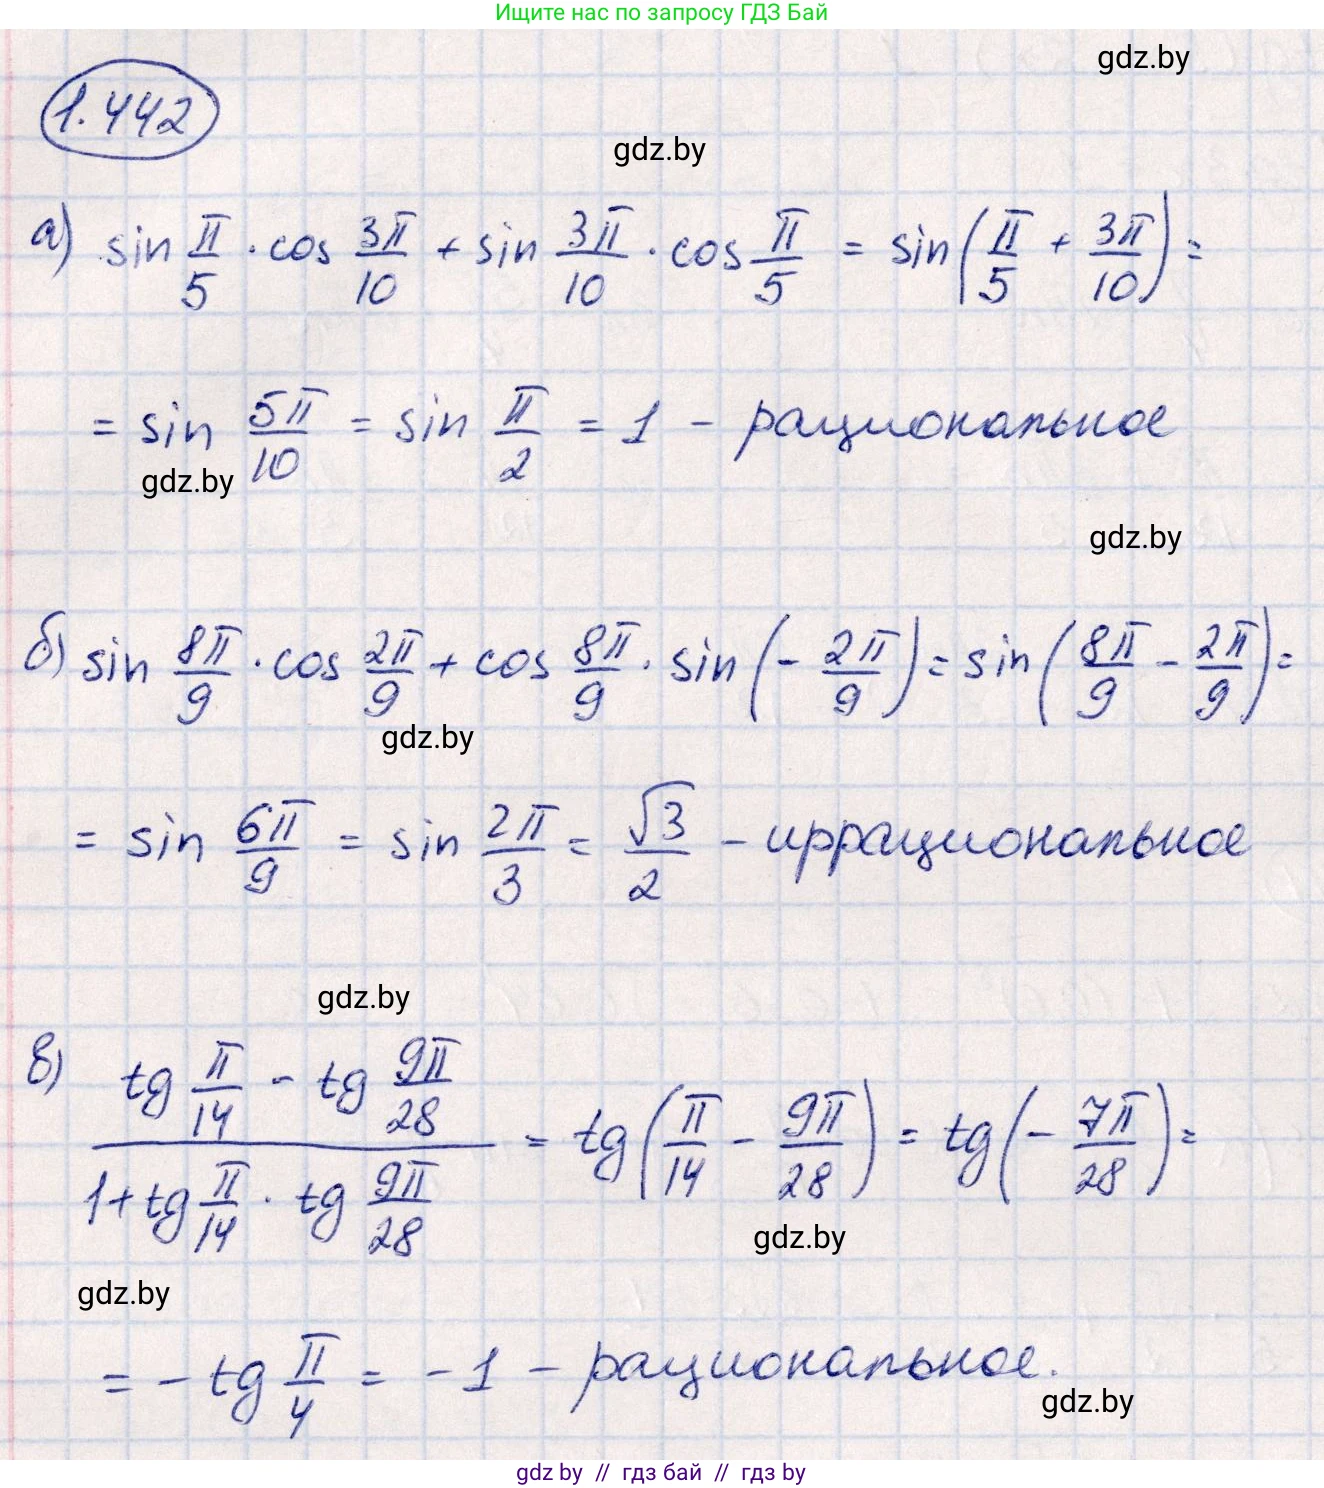 Ищите нас по запросу ГДЗ Бай
gdz.by
1.442
gdz.by
а) sin π/5 · cos 3π/10 + sin 3π/10 · cos π/5 = sin(π/5 + 3π/10) =
= sin 5π/10 = sin π/2 = 1 - рациональное
gdz.by
gdz.by
б) sin 8π/9 · cos 2π/9 + cos 8π/9 · sin(- 2π/9) = sin(8π/9 - 2π/9) =
gdz.by
= sin 6π/9 = sin 2π/3 = √3/2 - иррациональное
gdz.by
в) (tg π/14 - tg 9π/28)/(1 + tg π/14 · tg 9π/28) = tg(π/14 - 9π/28) = tg(- 7π/28) =
gdz.by
gdz.by
= - tg π/4 = -1 - рациональное.
gdz.by
gdz by // гдз бай // гдз by